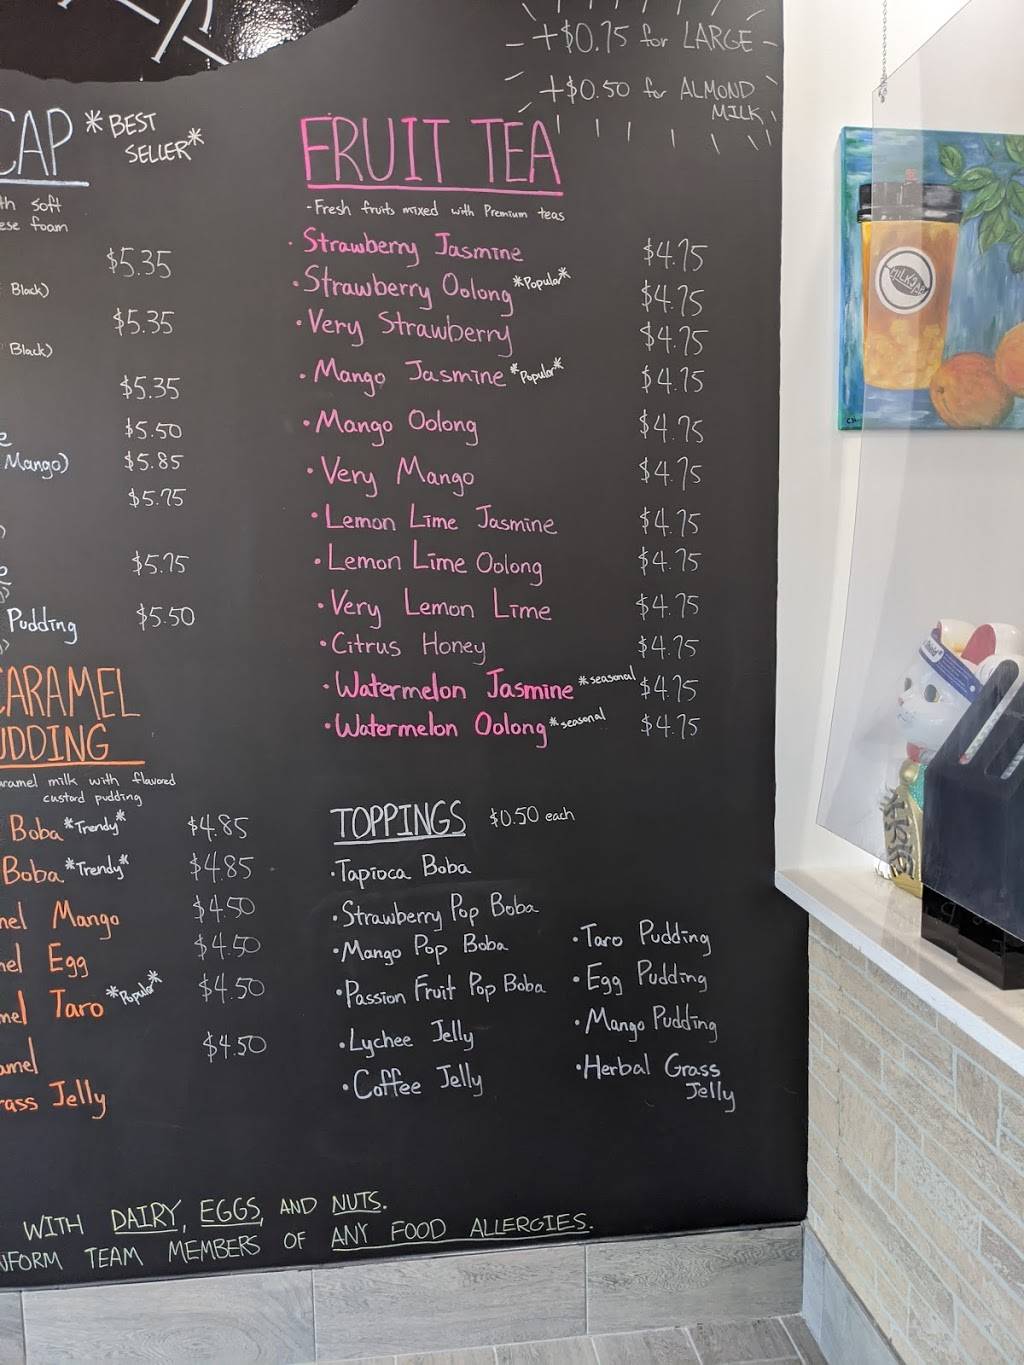 +$0.75 for LARGE
+$0.50 for ALMOND
MILK
CAP *BEST
SELLER*
soft
foam
$5.35
Black)
$5.35
Black)
$5.35
$5.50
Mango) $5.85
$5.75
$5.75
Pudding $5.50
CARAMEL
PUDDING
milk with flavored
custard pudding
Boba *Trendy* $4.85
Boba *Trendy* $4.85
Mango $4.50
Egg $4.50
Taro *Popular* $4.50
$4.50
Jelly
FRUIT TEA
- Fresh fruits mixed with Premium teas
· Strawberry Jasmine $4.75
· Strawberry Oolong *Popular* $4.75
· Very Strawberry $4.75
· Mango Jasmine *Popular* $4.75
· Mango Oolong $4.75
· Very Mango $4.75
· Lemon Lime Jasmine $4.75
· Lemon Lime Oolong $4.75
· Very Lemon Lime $4.75
· Citrus Honey $4.75
· Watermelon Jasmine *seasonal $4.75
· Watermelon Oolong *seasonal $4.75
TOPPINGS $0.50 each
· Tapioca Boba
· Strawberry Pop Boba
· Mango Pop Boba
· Passion Fruit Pop Boba
· Lychee Jelly
· Coffee Jelly
· Taro Pudding
· Egg Pudding
· Mango Pudding
· Herbal Grass
Jelly
WITH DAIRY, EGGS, AND NUTS.
INFORM TEAM MEMBERS OF ANY FOOD ALLERGIES.